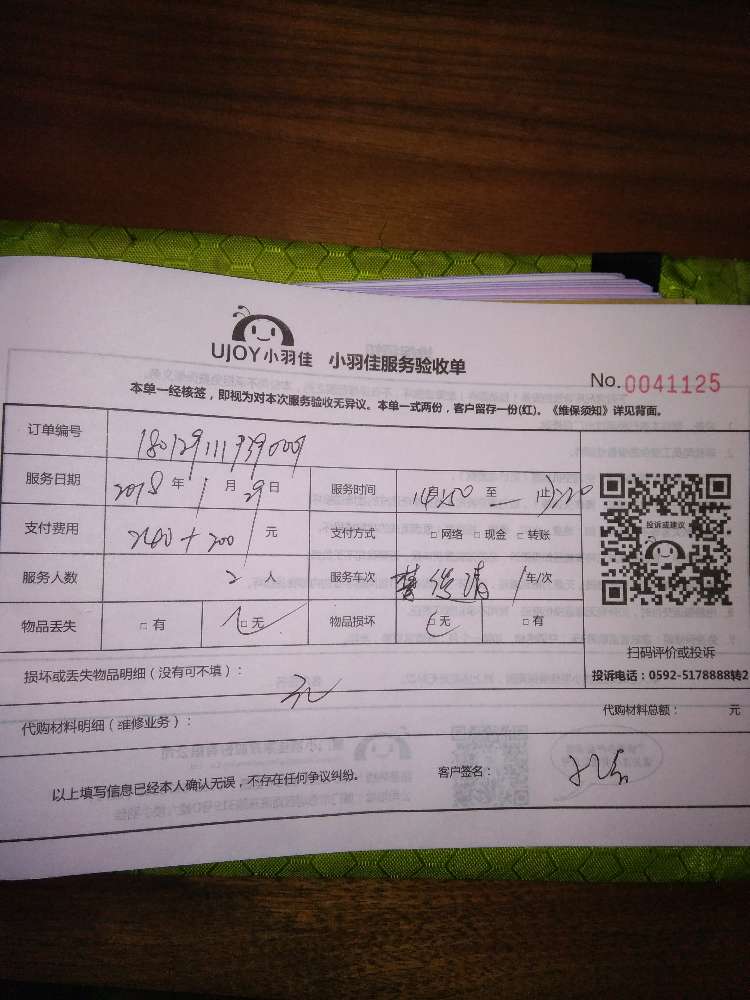 UJOY小羽佳 小羽佳服务验收单
No.0041125
本单一经核签，即视为对本次服务验收无异议。本单一式两份，客户留存一份(红)。《维保须知》详见背面。
订单编号
服务日期 2018年1月29日 服务时间 至 止
支付费用 240+200元 支付方式 □网络 □现金 □转账
服务人数 2人 服务车次 车/次
物品丢失 □有 □无 物品损坏 □无 □有
投诉或建议
扫码评价或投诉
投诉电话：0592-5178888转2
损坏或丢失物品明细（没有可不填）： 无
代购材料明细（维修业务）： 代购材料总额： 元
以上填写信息已经本人确认无误，不存在任何争议纠纷。 客户签名：